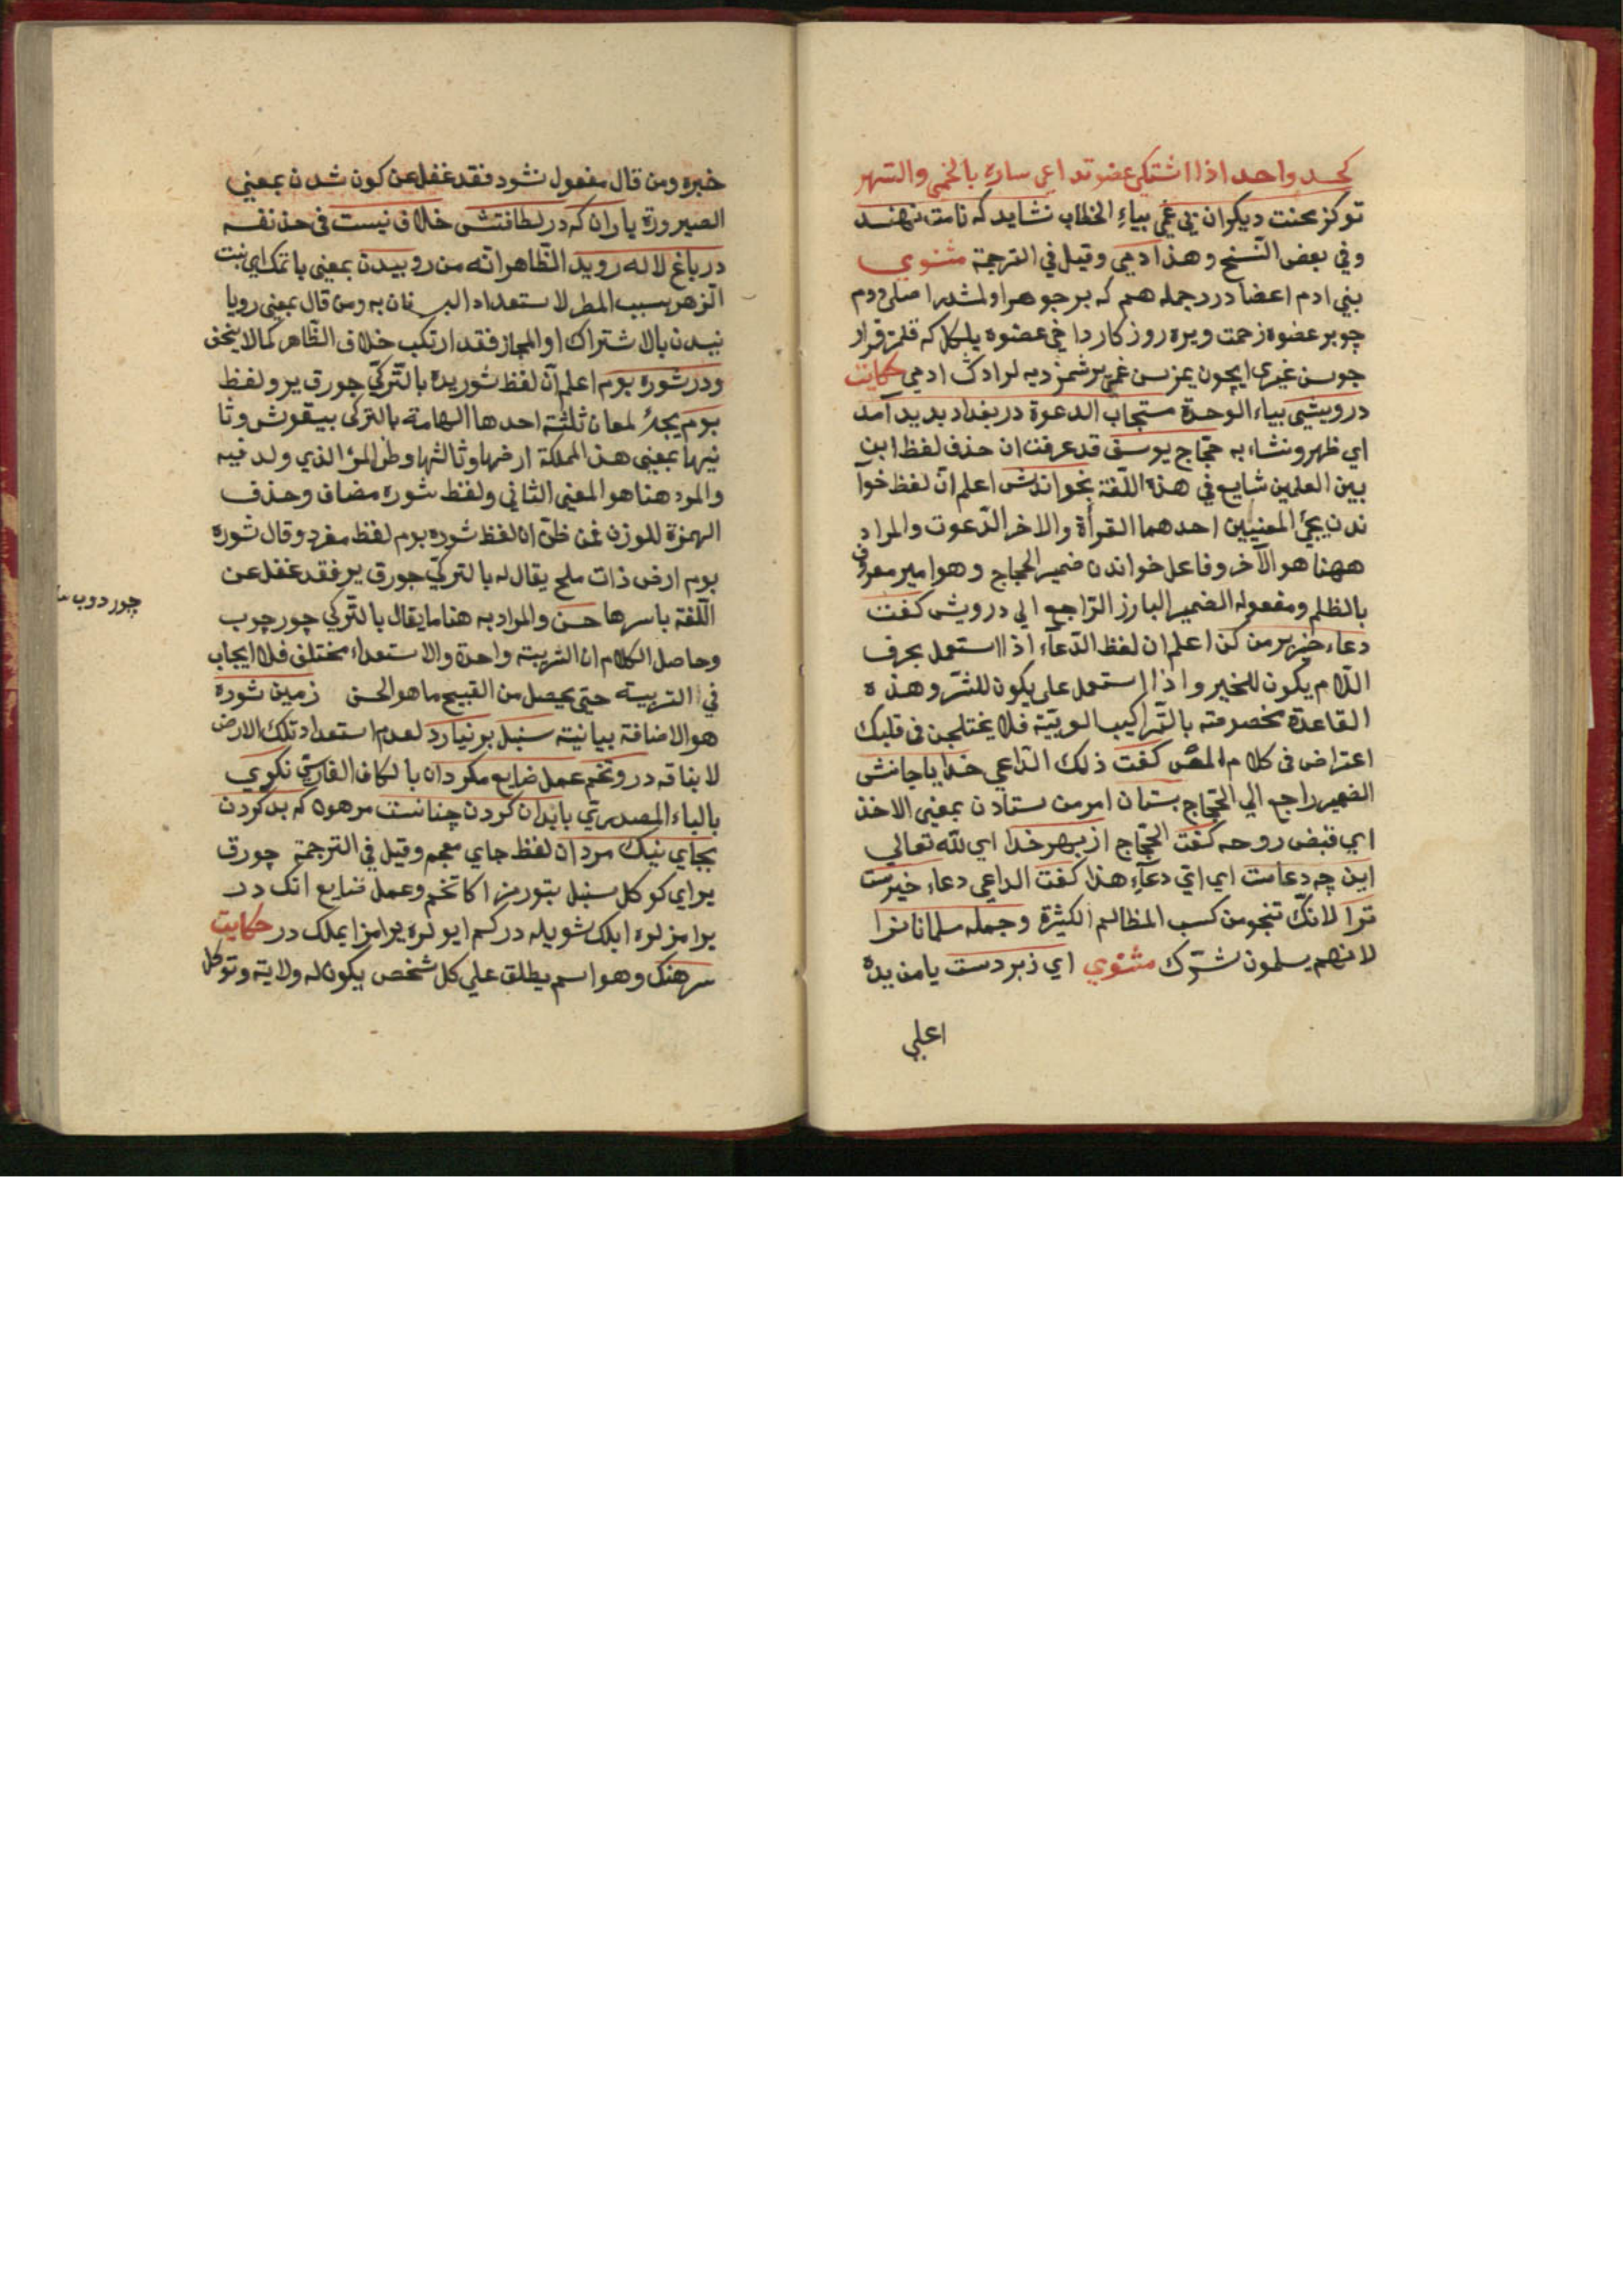 كجسد واحد اذا اشتكى عضو تداعى ساره بالحمى والسهر
توكز محنت ديكران بى غمى بياء الخطاب نشايد كه نامت نهند
وفي بعض النسخ وهذا ادمى وقيل في الترجمة مثنوي
بني ادم اعضا در جمله هم كه بر جوهر اولمشدر اصلى ودم
چو بر عضوه زحمت ويره روزكار داخى عضوه يلكل كه قلمز قرار
جو سن غيرى ايچون يمزسن غمى يرشمز ديه لر ادك ادمي حكايت
درويشى بياء الوحدة مستجاب الدعوة در بغداد بديد آمد
اي ظهر ونشاء به حجّاج يوسف قد عرفت ان حذف لفظ ابن
بين العلمين شايع في هذه اللّغة بخواندش اعلم انّ لفظ خوا
ندن يجئ المعنيين احدهما القرأة والاخر الدّعوت والمراد
ههنا هو الآخر وفاعل خواندن ضمير الحجاج وهو امير معروف
بالظلم ومفعوله الضمير البارز الرّاجع الي درويش كفت
دعاء خير بر من كن اعلم ان لفظ الدّعاء اذا استعمل بحرف
اللّام يكون للخير واذا استعمل على يكون للشرّ وهذه
القاعدة مخصوصته بالتّراكيب العربيّة فلا يختلجن فى قلبك
اعتراض فى كلام المص كفت ذلك الدّاعي خدايا جانش
الضمير راجع الي الحجّاج بستان امر من ستادن بمعنى الاخذ
اي قبض روحه كفت الحجّاج از بهر خدا اي لله تعالي
اين چه دعاست اي اىّ دعاء هذا كفت الداعي دعاء خيرست
ترا لانّك تنجو من كسب المظالم الكثيرة وجمله مسلمانانرا
لانهم يسلمون شرّك مثنوي اي زبردست يا من يده
اعلي
خبره ومن قال مفعول نشود فقد غفل عن كون شدن بمعني
الصيرورة باران كه در لطافتش خلاف نيست فى حد نفسه
در باغ لاله رويد الظّاهر انّه من روييدن بمعنى باتمك اي نبت
الزهر بسبب المطر لاستعداد البستان به ومن قال بمعنى رويا
نيدن بالاشتراك او المجاز فقد ارتكب خلاف الظّاهر كما لا يخفى
ودر شوره بوم اعلم انّ لفظ شوريده بالتّركيّ جورق ير ولفظ
بوم يجئ لمعان ثلثة احدها الهامة بالتركى بيقوش وثا
نيها بمعنى هذ المملكة ارضها وثالثها وطن المرء الذي ولد فيه
والمرد هنا هو المعنى الثاني ولفظ شوره مضاف وحذف
الهمزة للوزن فمن ظنّ ان لفظ شوره بوم لفظ مفرد وقال شوره
بوم ارض ذات ملح يقال له بالتركيّ جورق ير فقد غفل عن
اللّغة باسرها حسن والمراد به هنا ما يقال بالتّركي چور چوب
چور دوب
وحاصل الكلام ان التربيته واحدة والاستعداد مختلف فلا ايجاب
في التربيته حتى يحصل من القبيح ما هو الحسن زمين شوره
هو الاضافة بيانيته سنبل بر نيارد لعدم استعداد تلك الارض
لابناقه درو تخم عمل ضايع مكردان بالكاف الفارسيّ نكوي
بالياء المصدري بابدان كردن چنانست مرهون كه بد كردن
بجاي نيك مردان لفظ جاي معجم وقيل في الترجمة چورق
يراي كوكل سنبل بتورمز اكا تخم وعمل ضايع انك در
يرامزلره ايلك شويله در كم ايولره يرامز ايملك در حكايت
سرهنك وهو اسم يطلق علي كل شخص يكون له ولاية وتوكل